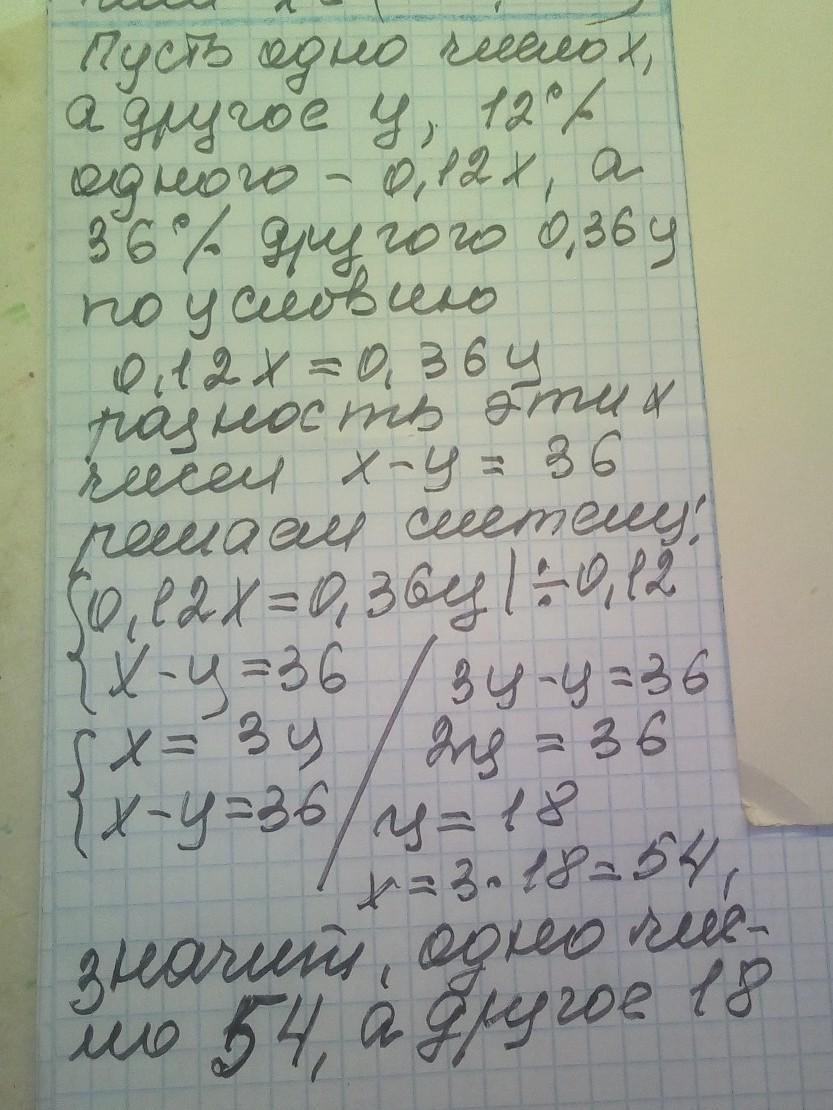 Пусть одно число х,
а другое у, 12%
одного - 0,12х, а
36% другого 0,36у
по условию
0,12х = 0,36у
разность этих
чисел х-у = 36
решаем систему:
{0,12х=0,36у|÷0,12
{х-у=36
{х= 3у
{х-у=36
3у-у=36
2у = 36
у= 18
х=3·18=54,
значит, одно чис-
ло 54, а другое 18